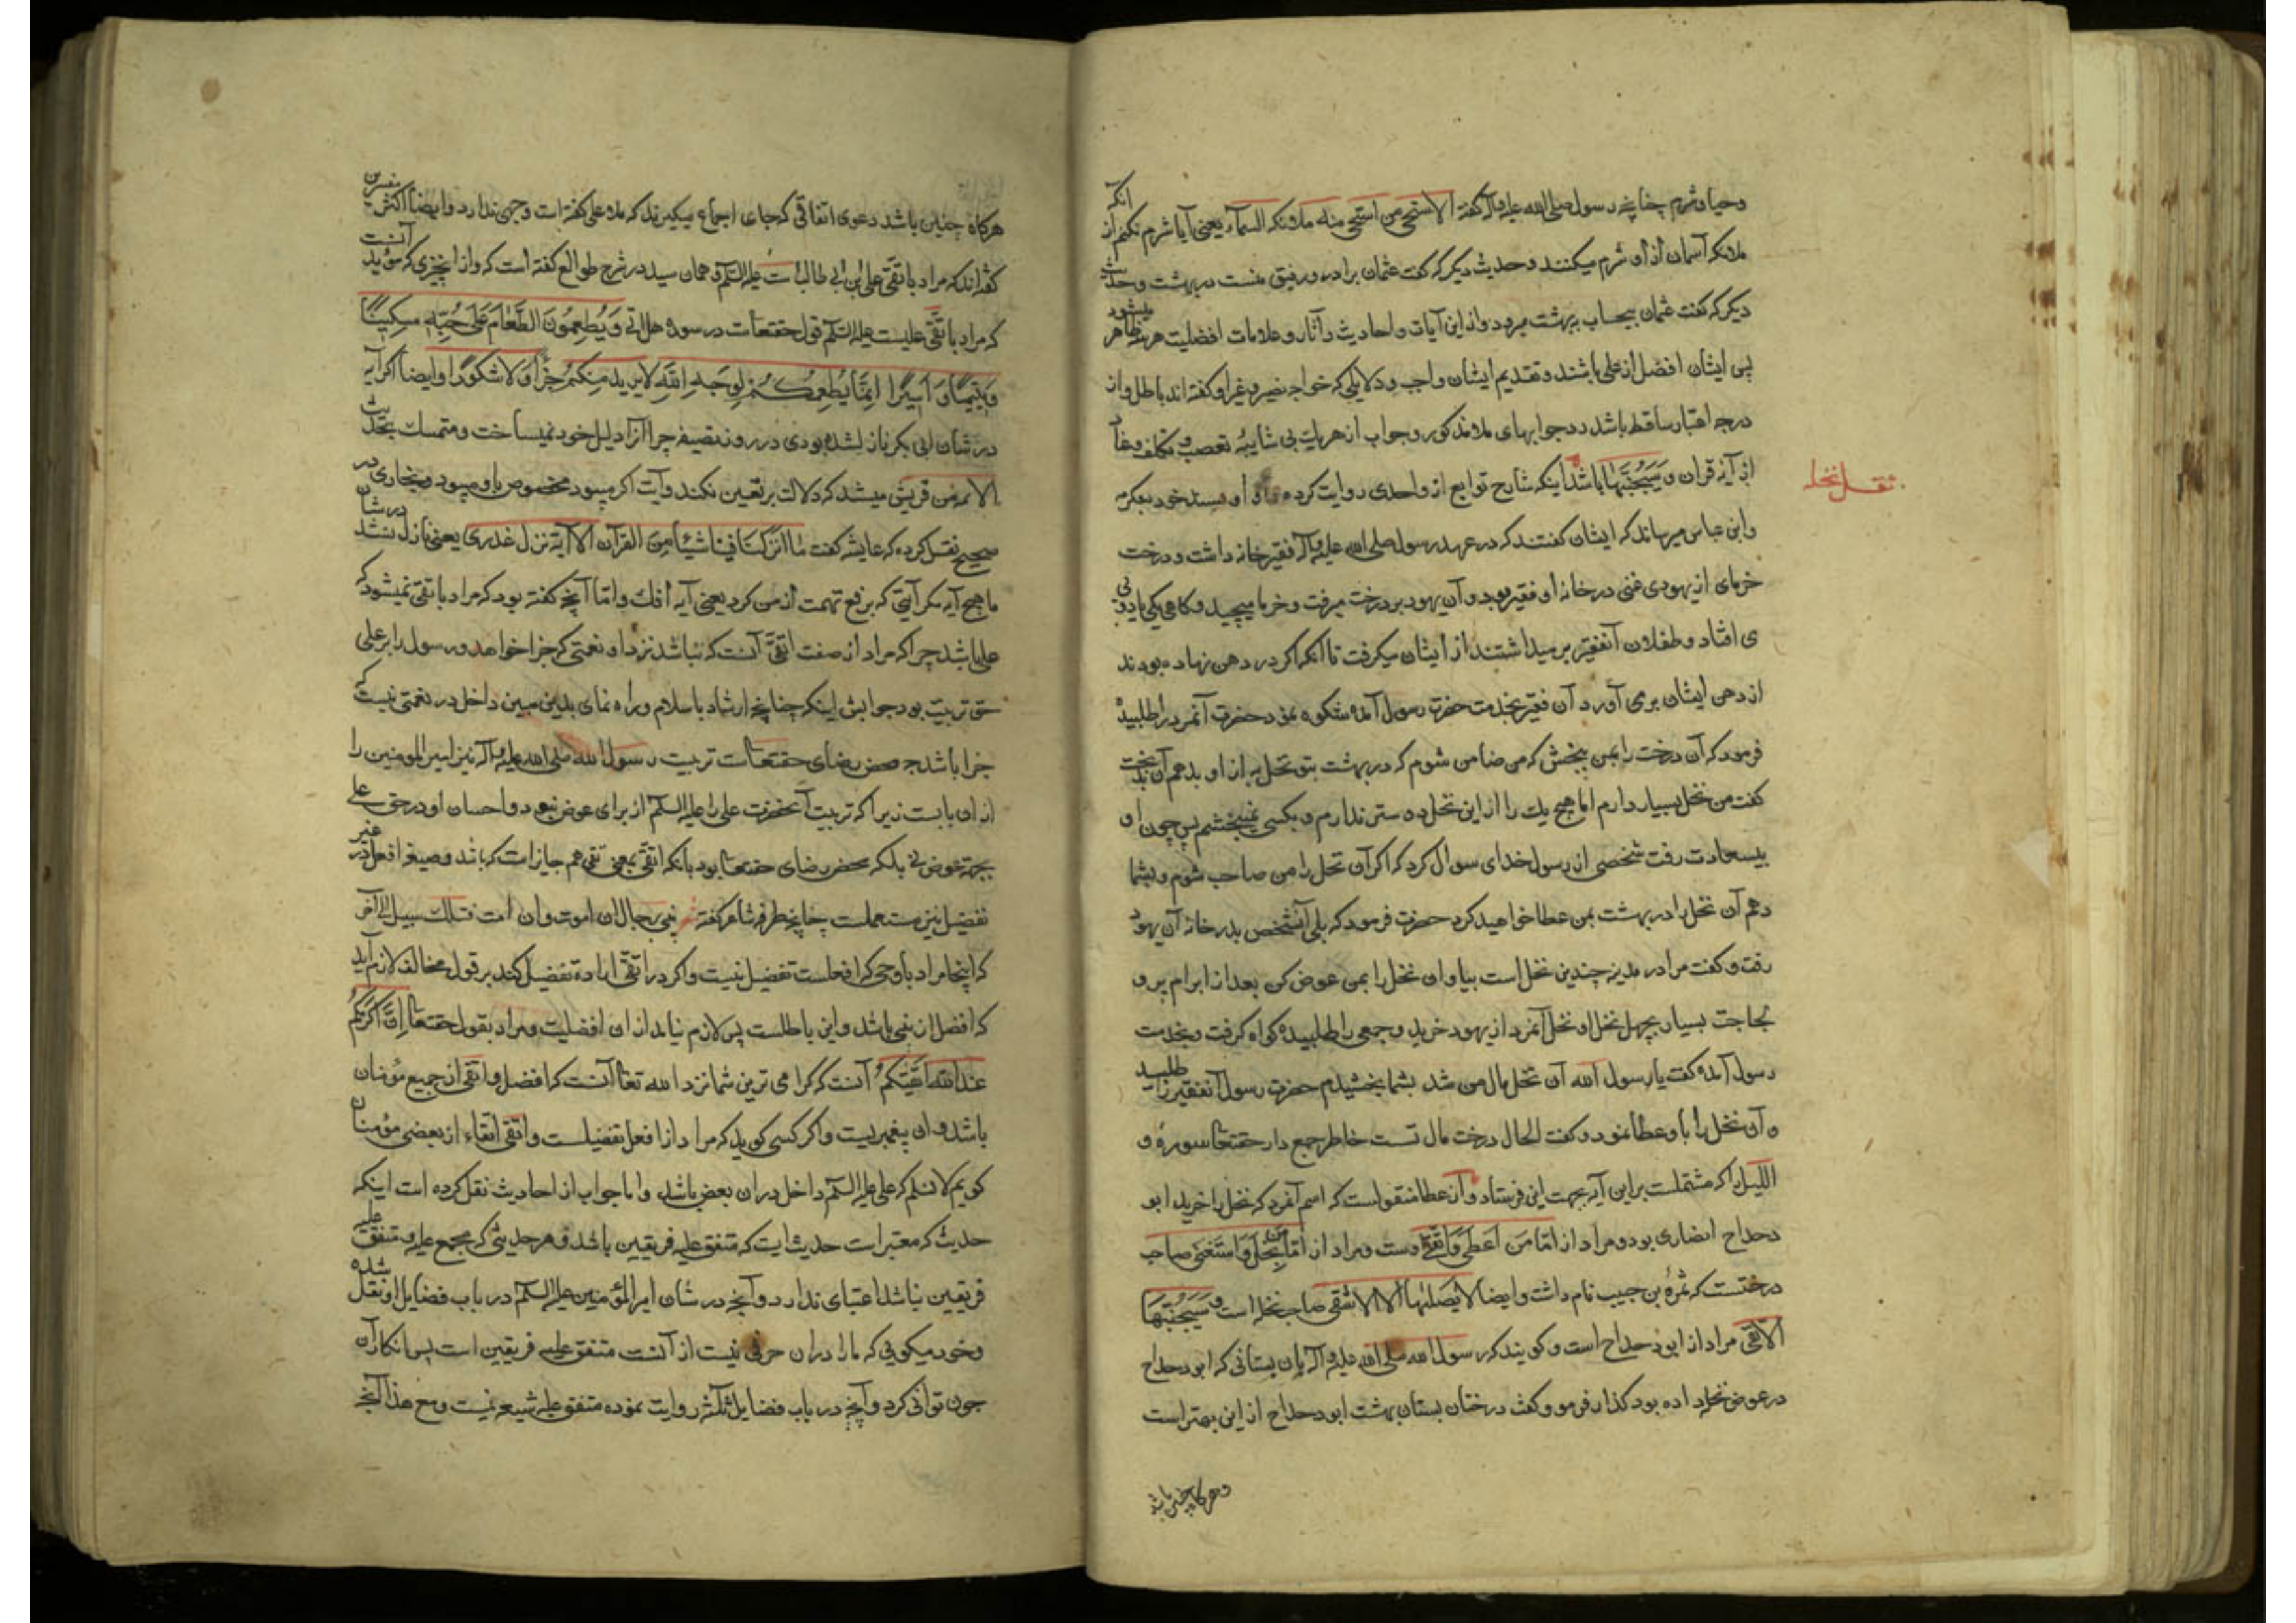 وحیا و شرم چنانچه رسول صلی الله علیه وآله کفته الا استحی من استحی منه ملائکه السماء یعنی آیا شرم نکنم از انکه
ملائکه آسمان از او شرم میکنند و حدیث دیکر که کفت عثمان برادر و رفیق منست در بهشت و حدیث
دیکر که کفت عثمان بیحساب ببهشت میرود و از این آیات و احادیث و آثار و علامات افضلیت هر سه ظاهر میشود
پس ایشان افضل از علی باشند و تقدیم ایشان واجب و دلایلی که خواجه نصیر و غیر او کفته اند باطل و از
درجه اعتبار ساقط باشد و جوابهای ملا مذکور و جواب از هر یك بی شایبه تعصب و تکلف و
از آیه قران و سیجنبها باشد اینکه شارح توابع از واحدی روایت کرده و او بسند خود بعکرمه
وابن عباس میرساند که ایشان کفتند که در عهد رسول صلی الله علیه وآله فقیر خانه داشت و درخت
خرمای از یهودی غنی در خانه او فقیر بود و آن یهود بر درخت میرفت و خرما میچید و کاهی یکی یا دوئی
ی افتاد و طفلان آنفقیر بر میداشتند از ایشان میکرفت تا آنکه اکر در دهن نهاده بودند
از دهن ایشان بری آورد آن فقیر بخدمت حضرت رسول آمده شکوه نمود حضرت آنمرد را طلبیده
فرمود که آن درخت را بمن ببخش که من ضامن شوم که در بهشت بتو نخل به از او بدهم آن بدبخت
کفت من نخل بسیار دارم اما هیچ یك را از این نخل دوستر ندارم و بکسی نمیبخشم پس چون او
بیسعادت رفت شخصی از رسول خدای سوال کرد که اکر آن نخل را من صاحب شوم و بشما
دهم آن نخل را در بهشت بمن عطا خواهید کرد حضرت فرمود که بلی آنشخص بدر خانه آن یهود
رفت و کفت مرا در مدینه چندین نخل است بیا و ان نخل را بمن عوض کن بعد از ابرام پر و
لجاجت بسیار بچهل نخل او نخل آنمرد از یهود خرید و جمعی را طلبیده کواه کرفت و بخدمت
رسول آمده کفت یا رسول الله آن نخل مال من شد بشما بخشیدم حضرت رسول آنفقیر را طلبید
و آن نخل را باو عطا نمود و کفت الحال درخت مال تست خاطر جمع دار حقتعا سوره و
اللیل را که مشتملست بر این آیه بجهت این فرستاد و از عطا منقولست که اسم آنمرد که نخل را خرید ابو
دحداح انصاری بود و مراد از امّا من اعطی واتقی اوست و مراد از امّا من بخل واستغنی صاحب
درختست که ثمرهٔ بن حبیب نام داشت و ایضا لا یصلیها الا الاشقی صاحب نخله است و سیجنبها
الاتقی مراد از ابودحداح است و کویند که رسول الله صلی الله علیه وآله بان بستانی که ابودحداح
در عوض نخل داده بود کذار فرمود و کفت درختان بستان بهشت ابودحداح از این بهتر است
وهرکاه چنین باشد
نقل نخله
هرکاه چنین باشد دعوی اتفاقی که جای اجماع میکیرند که ملا علی کفته است وجهی ندارد وایضا اکثر مفسرین
کفته اند که مراد باتقی علی بن ابی طالب است علیه السلم و همان سید در شرح طوالع کفته است که واز انچیزی که مؤید آنست
که مراد باتقی علیست علیه السلم قول حقتعالی است در سورهٔ هل اتی ویطعمون الطعام علی حبّه مسکینًا
ویتیمًا واسیرًا انّما نطعمکم لوجه الله لا نرید منکم جزاء ولا شکورًا وایضا اکر آیه
در شان ابی بکر نازل شده بودی در روز سقیفه چرا آنرا دلیل خود نمیساخت و متمسك بحدیث
الائمه من قریش میشد که دلالت بر تعیین نکند و آیت اکر میبود مخصوص باو میبود و بخاری در
صحیح نقل کرده که عایشه کفت ما انزل الله فینا شیئًا من القرآن الا آیة نزل عذری یعنی نازل نشد در شان
ما هیچ آیه مکر آیتی که برفع تهمت از من کرد یعنی آیه افك و امّا آنچه کفته بود که مراد باتقی نمیشود که
علی باشد چرا که مراد از صفت اتقی آنست که نباشد نزد او نعمتی که جزا خواهد و رسول را بر علی
حق تربیت بود جوابش اینکه چنانچه ارشاد باسلام و راه نمای بدین مبین داخل در نعمتی نیست که
جزا باشد چه محض رضای حقتعالی است تربیت رسول الله صلی الله علیه وآله نیز امیرالمومنین را
از ان بابت زیرا که تربیت آنحضرت علی را علیه السلم از برای عوض نبود و احسان او در حق علی
بجهة عوض نی بلکه محض رضای حقتعا بود بآنکه اتقی بمعنی تقی هم جایز است که باشد و صیغه افعل در غیر
تفضیل نیز مستعملست چنانچه طرفه شاعر کفته شعر تمنی رجال ان اموت وان امت فتلك سبیل الی آخر
که اینجا مراد باوحد که افعلست تفضیل نیست و اکر در اتقی اراده تفضیل کند بر قول مخالف لازم آید
که افضل از نبی باشد و این باطلست پس لازم نیامد از ان افضلیت و مراد بقول حقتعا انّ اکرمکم
عند الله اتقیکم آنست که کرامی ترین شما نزد الله تعا آنست که افضل و اتقی از جمیع مؤمنان
باشد و ان پیغمبریست و اکر کسی کوید که مراد از افعل تفضیلست و اتقی اتقاء از بعضی مؤمنان
کویم لا نسلم که علی علیه السلم داخل در ان بعض باشد و اما جواب از احادیث نقل کرده است اینکه
حدیث که معتبر است حدیث ایست که متفق علیه فریقین باشد و هر حدیثی که مجمع علیه و متفق علیه
فریقین نباشد اعتبای ندارد و آنچه در شان امیرالمؤمنین علیه السلم در باب فضایل او نقل شده
و خود میکویی که مارا در ان حرفی نیست از آنست متفق علیه فریقین است پس انکار آن
چون توانی کرد و آنچه در باب فضایل ثلثه روایت نموده متفق علیه شیعه نیست و مع هذا آنچه